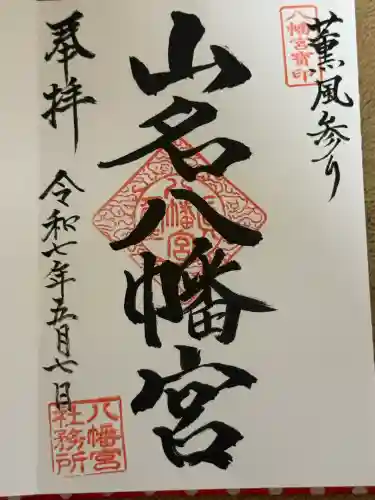 薫風参り
八幡宮寶印
山名八幡宮
八幡宮
奉拝
令和七年五月七日
八幡宮
社務所